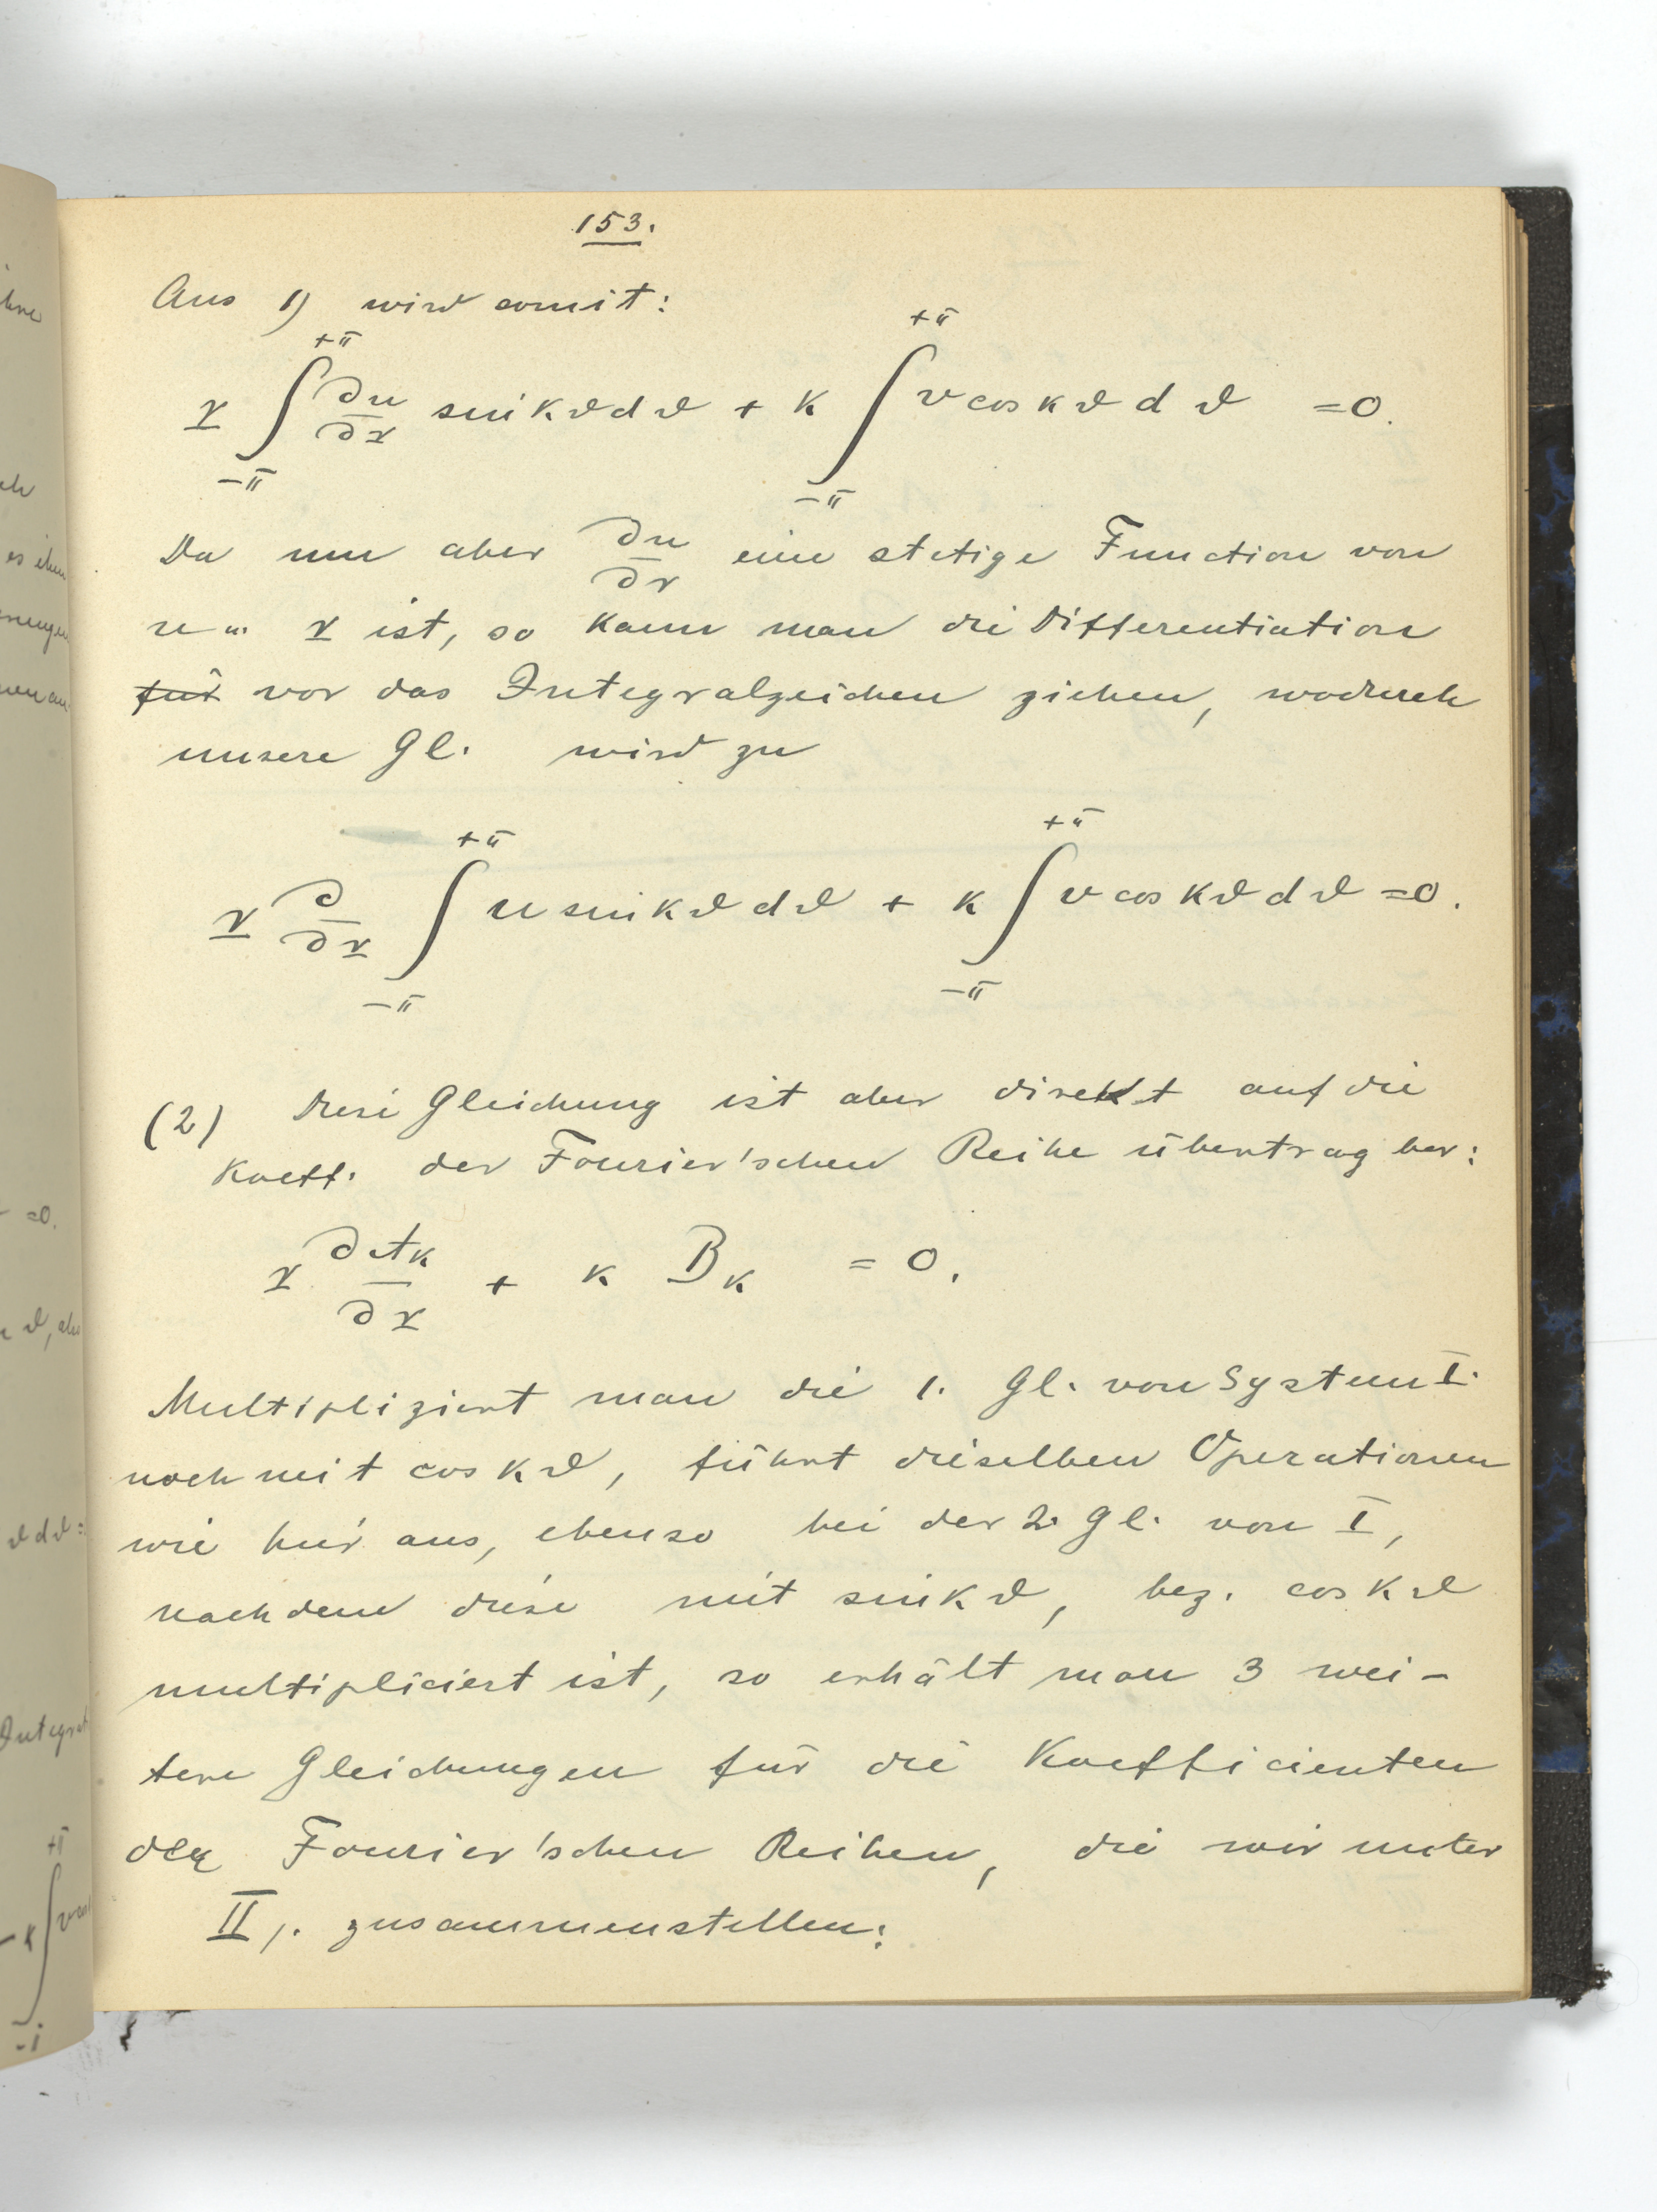 153.
Aus 1) wird somit:
r ∫_{-π}^{+π} ∂u/∂r sin kϑ dϑ + k ∫_{-π}^{+π} v cos kϑ dϑ = 0.
Da nun aber ∂u/∂r eine stetige Function von
u r ist, so kann man die Differentiation
für vor das Integralzeichen ziehen, wodurch
unsere Gl. wird zu
r ∂/∂r ∫_{-π}^{+π} u sin kϑ dϑ + k ∫_{-π}^{+π} v cos kϑ dϑ = 0.
(2) Diese Gleichung ist aber direkt auf die
Koeff. der Fourier'schen Reihe übertragbar:
r ∂A_k/∂r + k B_k = 0.
Multipliziert man die 1. Gl. von System I.
noch mit cos kϑ, führt dieselben Operationen
wie hier aus, ebenso bei der 2. Gl. von I,
nachdem diese mit sin kϑ, bez. cos kϑ
multipliciert ist, so erhält man 3 wei-
tere Gleichungen für die Koefficienten
der Fourier'schen Reihen, die wir unter
II). zusammenstellen: